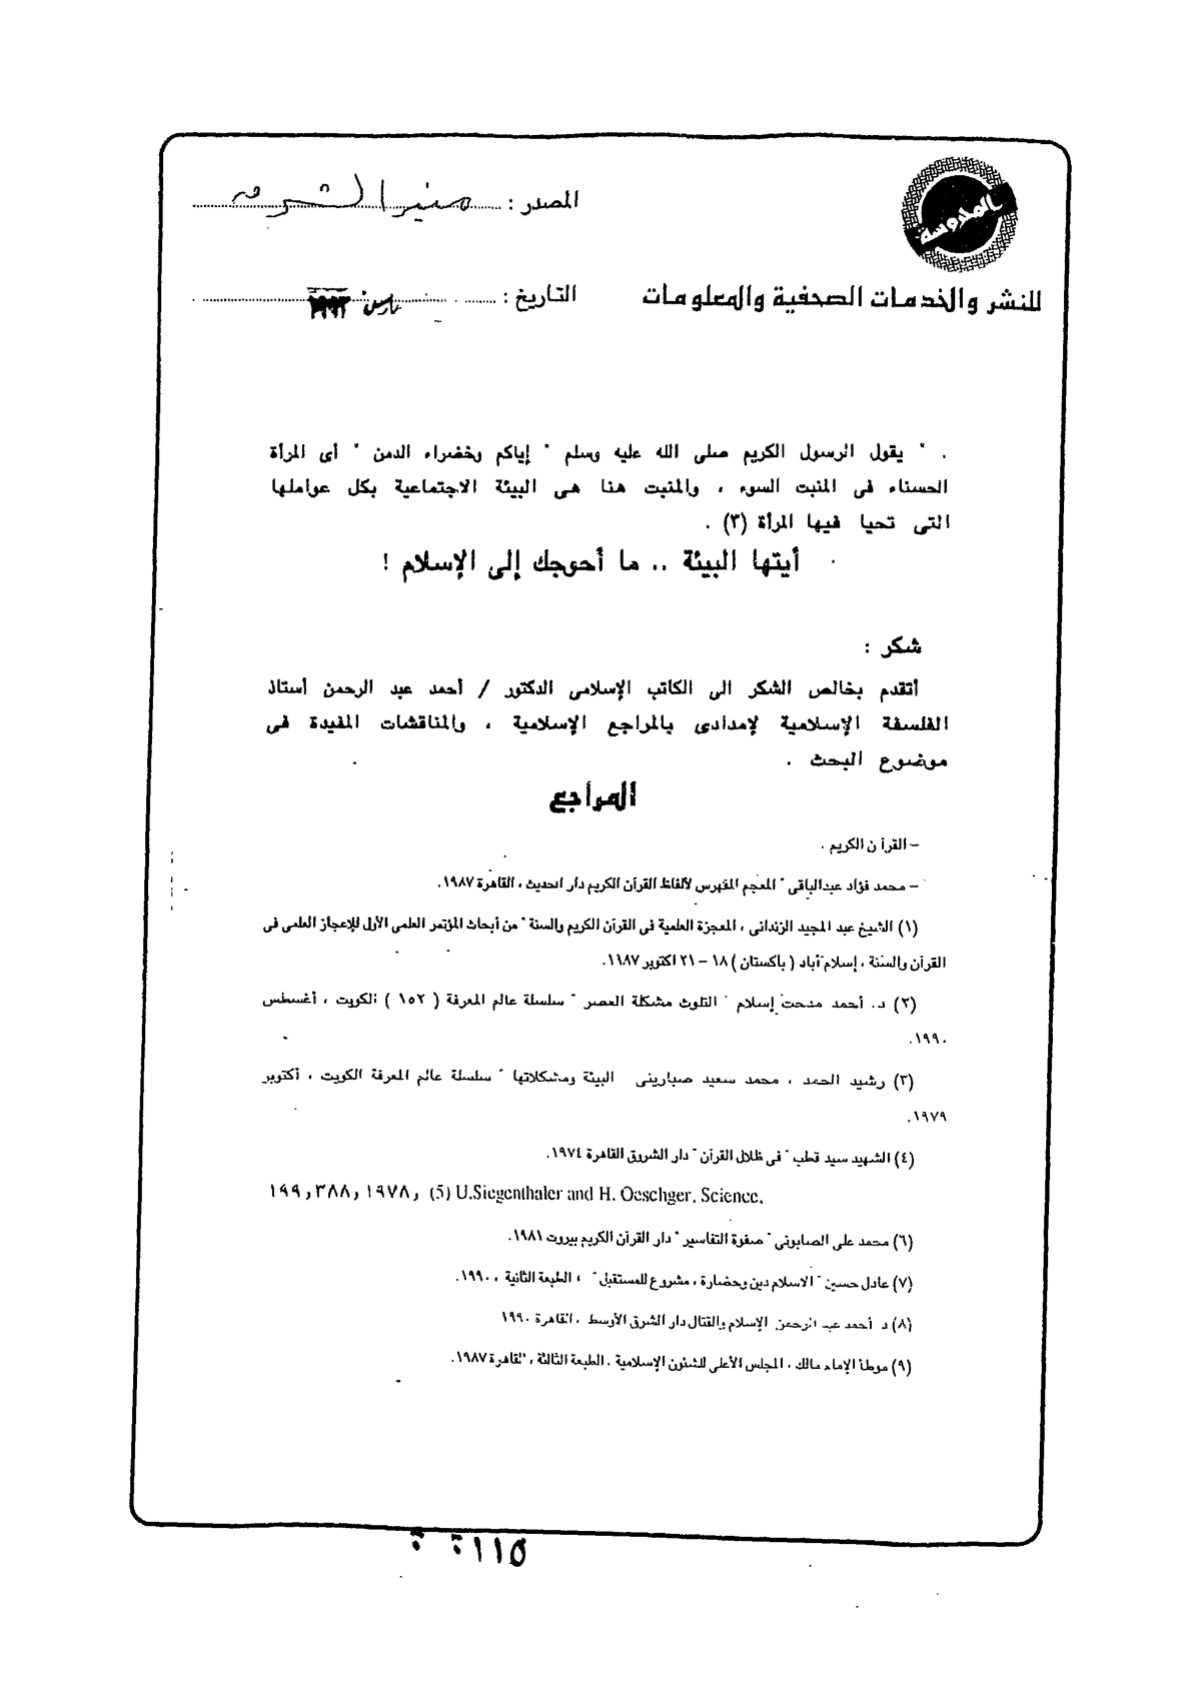 المصدر : منبر الشرق
المحروسة
للنشر والخدمات الصحفية والمعلومات
التاريخ : مارس
. " يقول الرسول الكريم صلى الله عليه وسلم " إياكم وخضراء الدمن " أى المرأة
الحسناء فى المنبت السوء ، والمنبت هنا هى البيئة الاجتماعية بكل عواملها
التى تحيا فيها المرأة (٣) .
أيتها البيئة .. ما أحوجك إلى الإسلام !
شكر :
أتقدم بخالص الشكر الى الكاتب الإسلامى الدكتور / أحمد عبد الرحمن أستاذ
الفلسفة الإسلامية لإمدادى بالمراجع الإسلامية ، والمناقشات المفيدة فى
موضوع البحث .
المراجع
– القرآن الكريم .
– محمد فؤاد عبدالباقى " المعجم المفهرس لألفاظ القرآن الكريم دار الحديث ، القاهرة ١٩٨٧.
(١) الشيخ عبد المجيد الزندانى ، المعجزة العلمية فى القرآن الكريم والسنة " من أبحاث المؤتمر العلمى الأول للإعجاز العلمى فى
القرآن والسنة ، إسلام آباد ( باكستان ) ١٨ – ٢١ اكتوبر ١٩٨٧.
(٢) د. أحمد مدحت إسلام " التلوث مشكلة العصر " سلسلة عالم المعرفة ( ١٥٢ ) الكويت ، أغسطس
١٩٩٠.
(٣) رشيد الحمد ، محمد سعيد صبارينى البيئة ومشكلاتها " سلسلة عالم المعرفة الكويت ، أكتوبر
١٩٧٩.
(٤) الشهيد سيد قطب " فى ظلال القرآن " دار الشروق القاهرة ١٩٧٤.
(5) U.Siegenthaler and H. Oeschger, Science, ١٩٩,٣٨٨,١٩٧٨,
(٦) محمد على الصابونى " صفوة التفاسير " دار القرآن الكريم بيروت ١٩٨١.
(٧) عادل حسين " الاسلام دين وحضارة ، مشروع للمستقبل " ، الطبعة الثانية ، ١٩٩٠.
(٨) د أحمد عبد الرحمن الإسلام والقتال دار الشرق الأوسط ، القاهرة ١٩٩٠
(٩) موطأ الإمام مالك ، المجلس الأعلى للشئون الإسلامية ، الطبعة الثالثة ، القاهرة ١٩٨٧.
١١٥